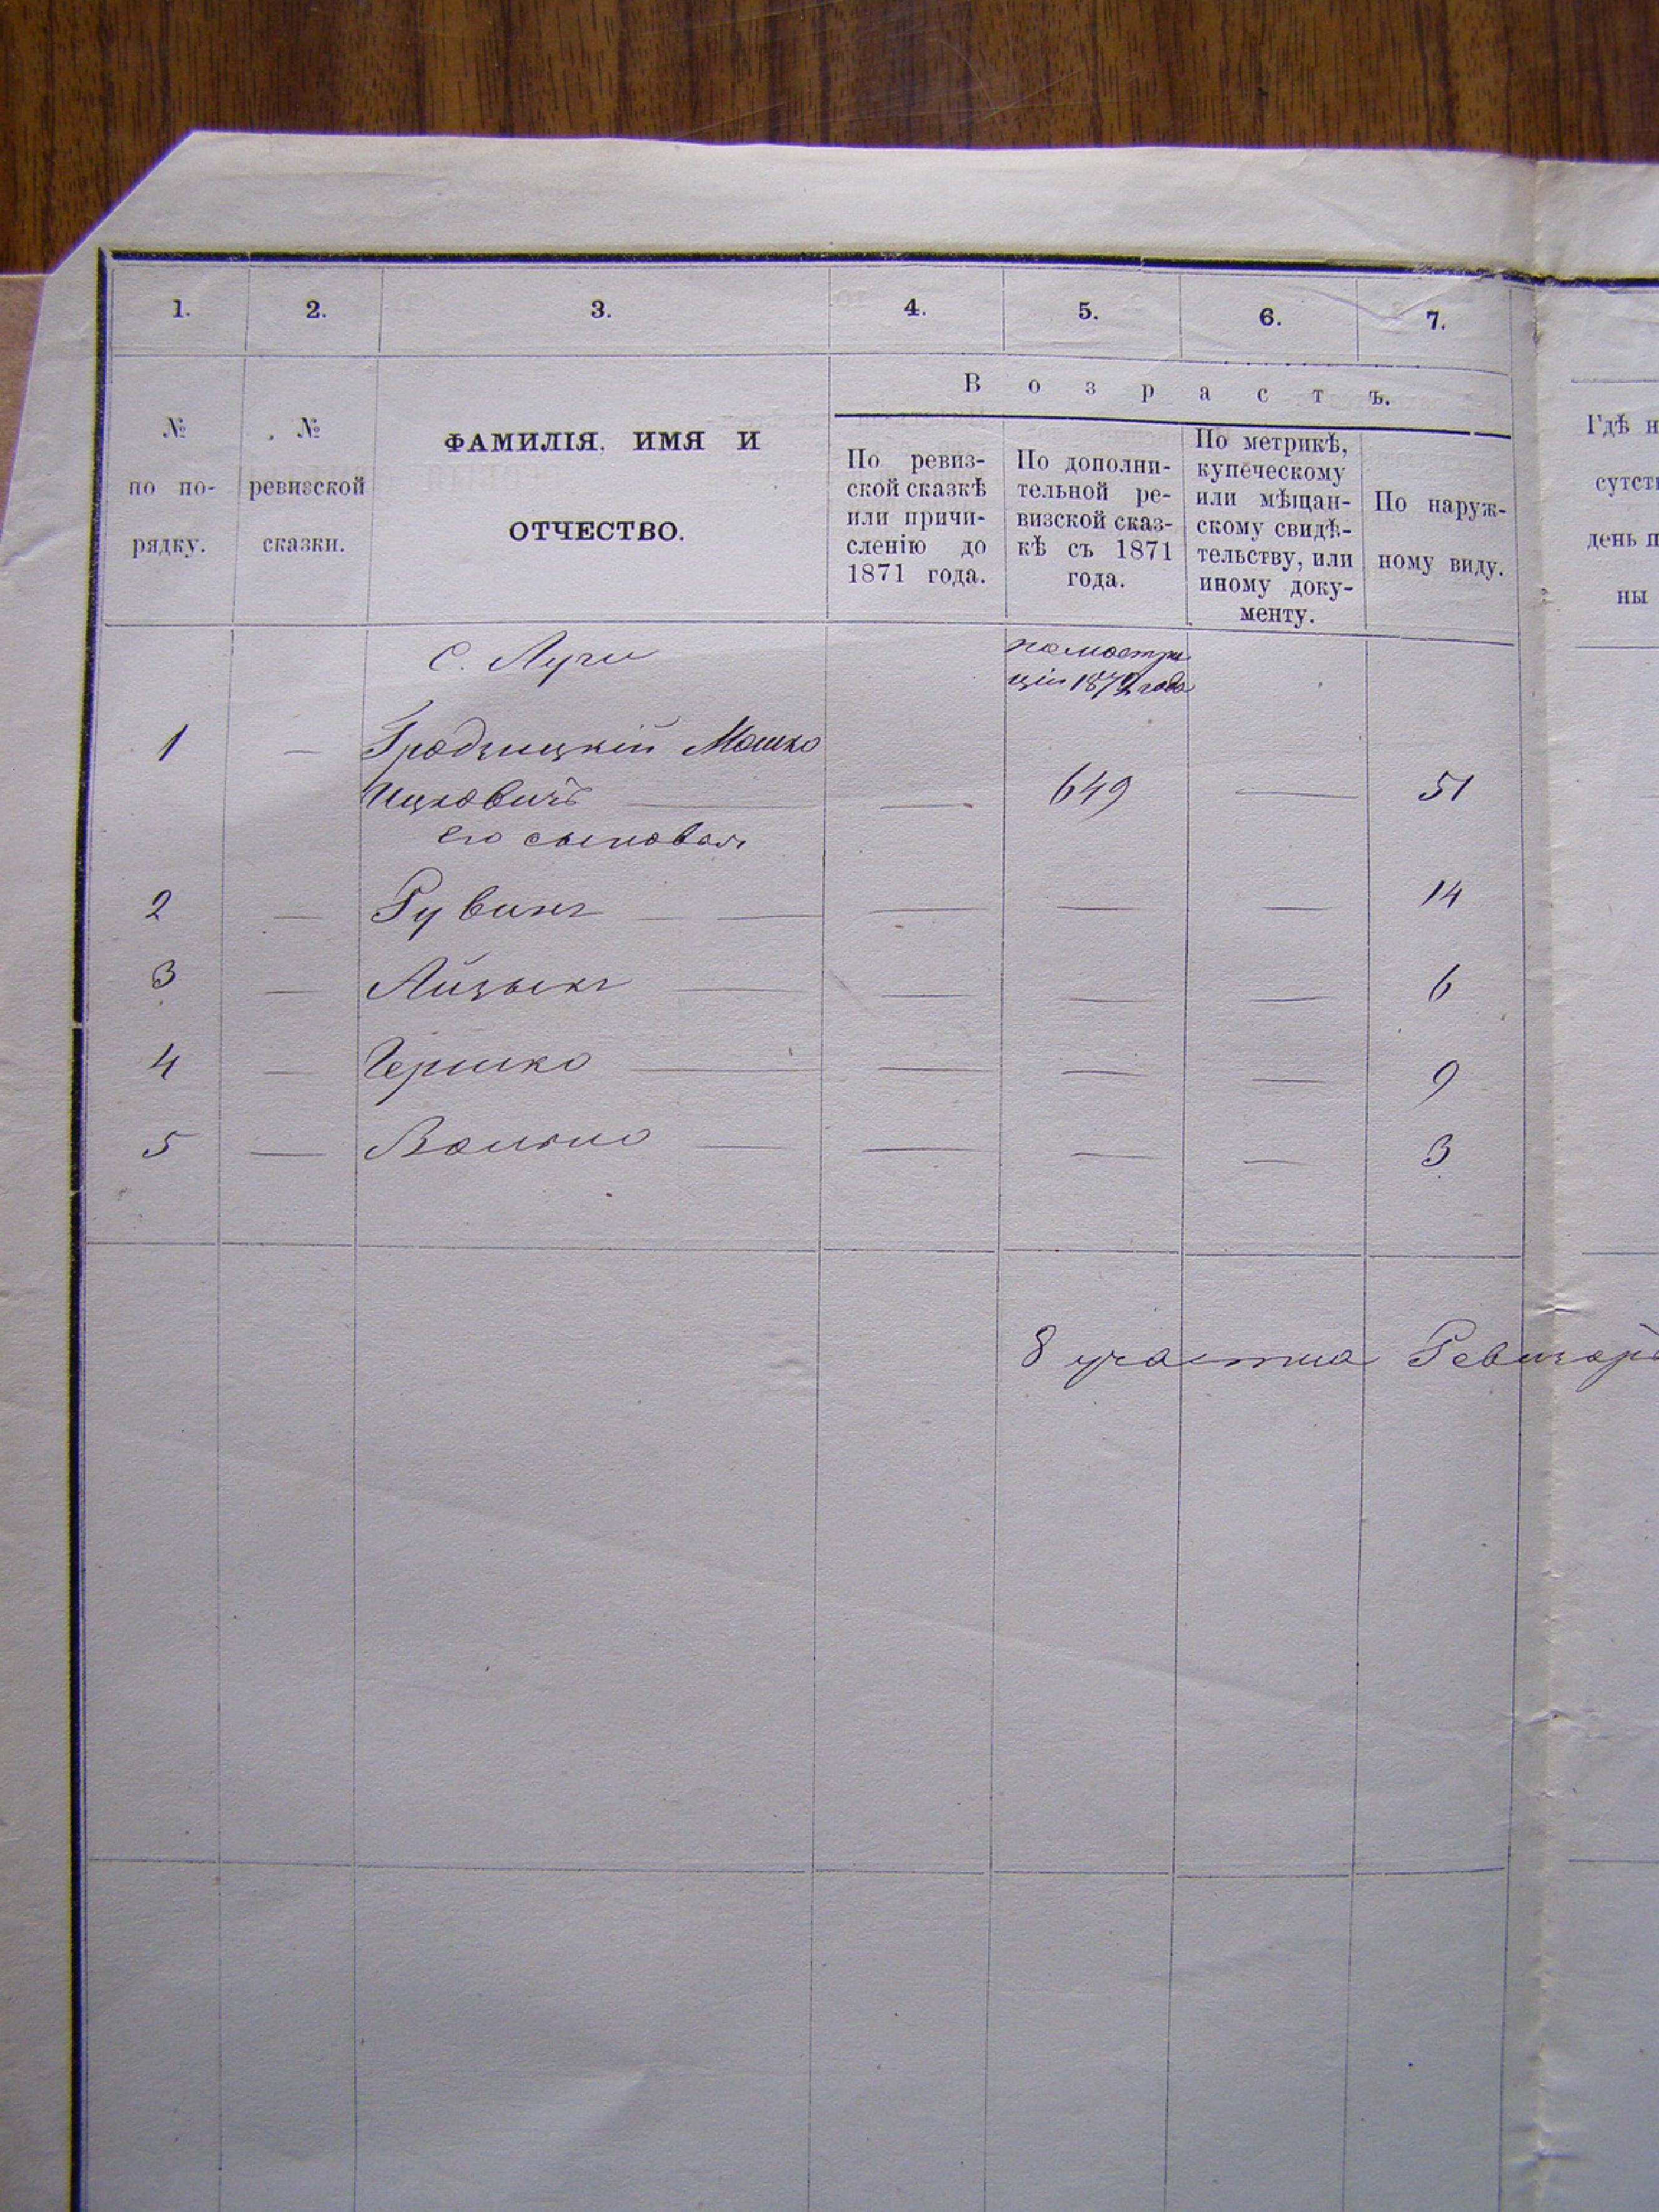 1. 2. 3. 4. 5. 6. 7.
Возрастъ.
№
по по-
рядку.
№
ревизской
сказки.
ФАМИЛІЯ, ИМЯ И
ОТЧЕСТВО.
По ревиз-
ской сказкѣ
или причи-
сленію до
1871 года.
По дополни-
тельной ре-
визской сказ-
кѣ съ 1871
года.
По метрикѣ,
купеческому
или мѣщан-
скому свидѣ-
тельству, или
иному доку-
менту.
По наруж-
ному виду.
Гдѣ н
сутст
день п
ны
с. Луги
года
1 — Гродзицкій Мошко
Ицковичъ — — 649 — 51
его сыновья
2 — Рувинъ — — — — — 14
3 — Айзыкъ — — — — 6
4 — Гершко — — — — 9
5 — — — — — 3
8 участка Ревизоръ